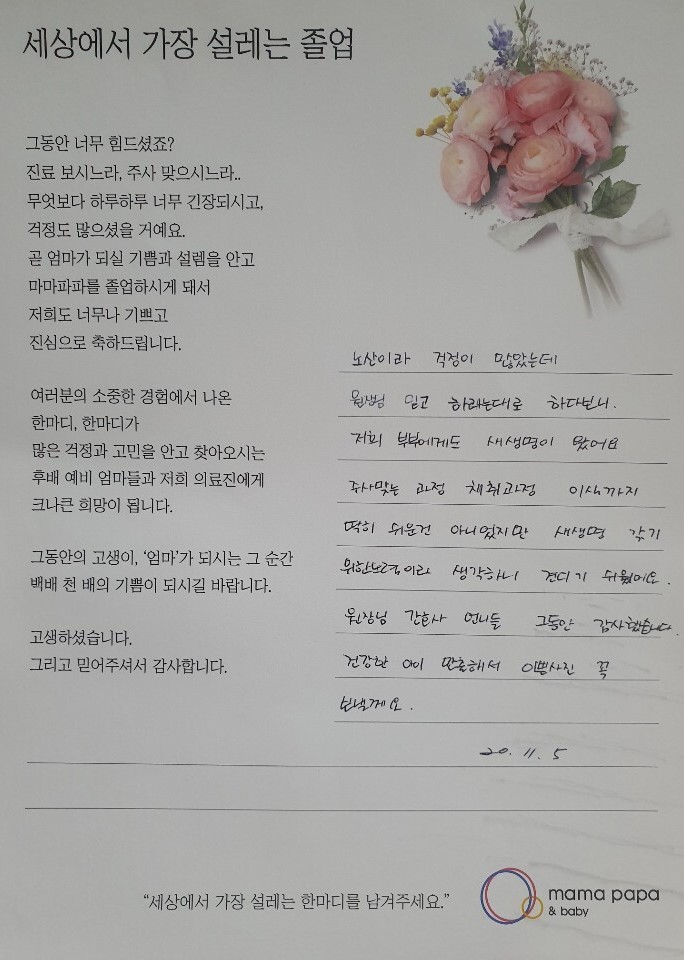 세상에서 가장 설레는 졸업
그동안 너무 힘드셨죠?
진료 보시느라, 주사 맞으시느라..
무엇보다 하루하루 너무 긴장되시고,
걱정도 많으셨을 거예요.
곧 엄마가 되실 기쁨과 설렘을 안고
마마파파를 졸업하시게 돼서
저희도 너무나 기쁘고
진심으로 축하드립니다.
여러분의 소중한 경험에서 나온
한마디, 한마디가
많은 걱정과 고민을 안고 찾아오시는
후배 예비 엄마들과 저희 의료진에게
크나큰 희망이 됩니다.
그동안의 고생이, ‘엄마’가 되시는 그 순간
백배 천 배의 기쁨이 되시길 바랍니다.
고생하셨습니다.
그리고 믿어주셔서 감사합니다.
노산이라 걱정이 많았는데
믿고 하라는대로 하다보니.
저희 부부에게도 새생명이 왔어요
주사맞는 과정 채취과정 이식까지
딱히 쉬운건 아니었지만 새생명 갖기
위한노력이라 생각하니 견디기 쉬웠어요.
원장님 간호사 언니들 그동안 감사했습니다
건강한 아이 만출해서 이쁜사진 꼭
보낼께요.
20. 11. 5
“세상에서 가장 설레는 한마디를 남겨주세요.”
mama papa
& baby